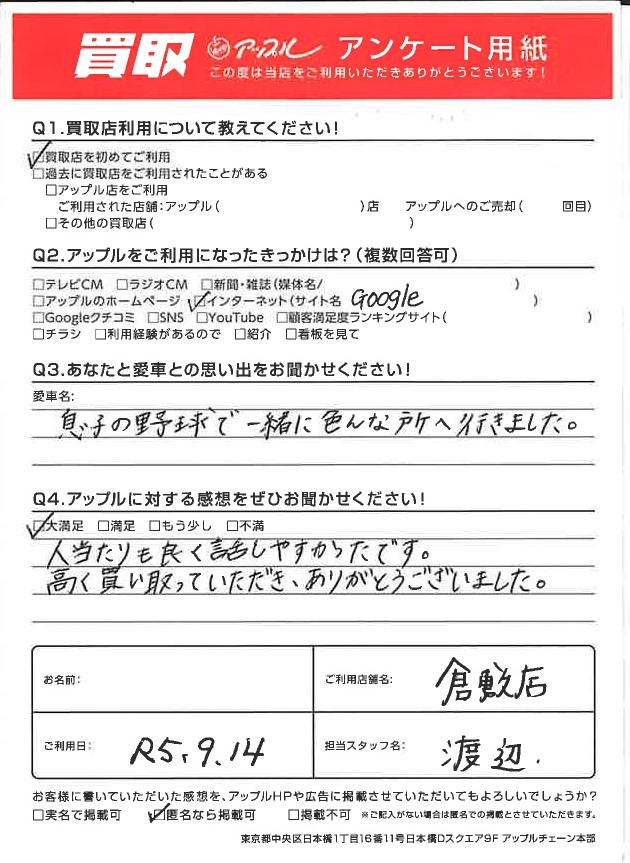 買取 アップル アンケート用紙
この度は当店をご利用いただきありがとうございます！
Q1.買取店利用について教えてください！
☑買取店を初めてご利用
□過去に買取店をご利用されたことがある
□アップル店をご利用
ご利用された店舗：アップル（　　）店　アップルへのご売却（　　回目）
□その他の買取店（　　）
Q2.アップルをご利用になったきっかけは？（複数回答可）
□テレビCM □ラジオCM □新聞・雑誌（媒体名/　　）
□アップルのホームページ ☑インターネット（サイト名 Google　　）
□Googleクチコミ □SNS □YouTube □顧客満足度ランキングサイト（　　）
□チラシ □利用経験があるので □紹介 □看板を見て
Q3.あなたと愛車との思い出をお聞かせください！
愛車名：
息子の野球で一緒に色んな所へ行きました。
Q4.アップルに対する感想をぜひお聞かせください！
☑大満足 □満足 □もう少し □不満
人当たりも良く話しやすかったです。
高く買い取っていただき、ありがとうございました。
お名前：
ご利用店舗名： 倉敷店
ご利用日： R5.9.14
担当スタッフ名： 渡辺.
お客様に書いていただいた感想を、アップルHPや広告に掲載させていただいてもよろしいでしょうか？
□実名で掲載可 ☑匿名なら掲載可 □掲載不可 ※ご記入がない場合は匿名での掲載とさせていただきます。
東京都中央区日本橋1丁目16番11号日本橋Dスクエア9F アップルチェーン本部